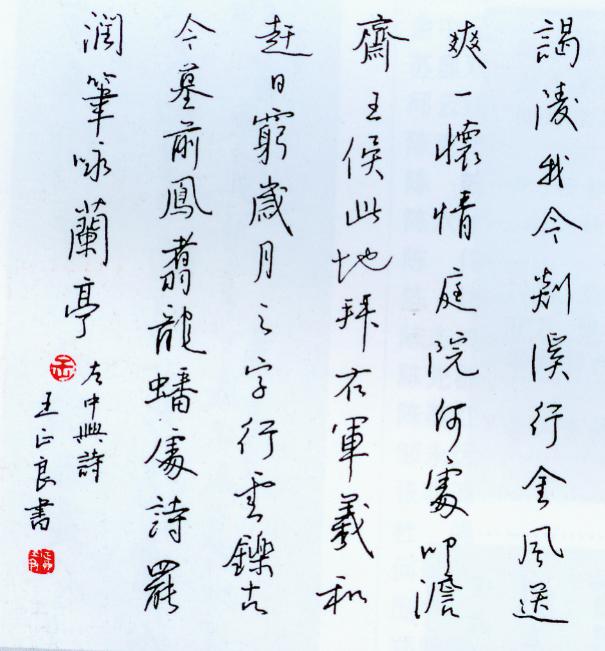 謁陵我今剡溪行金風送
爽一懷情庭院何處叩澹
齋王侯此地拜右軍羲和
趕日窮歲月之字行雲鑠古
今墓前鳳翥龍蟠處詩罷
潤筆咏蘭亭
左中興詩
王正良書